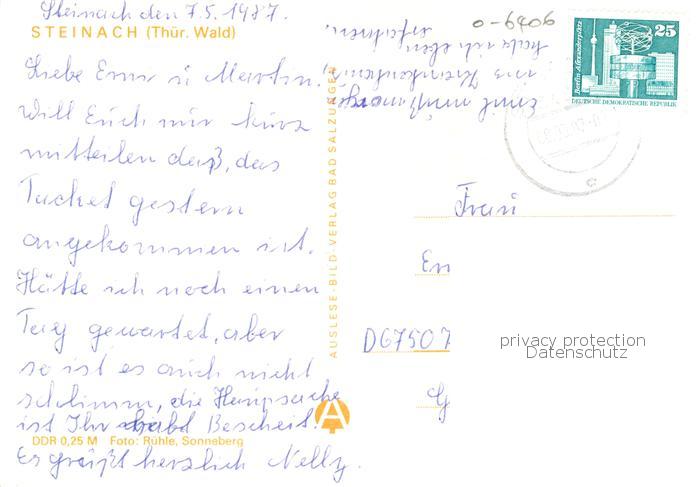 Steinach den 7.5.1987.
STEINACH (Thür. Wald)
Liebe Erna u Martin!
will Euch nur kurz
mitteilen daß, das
Packet gestern
angekommen ist.
Hätte ich noch einen
Tag gewartet, aber
so ist es auch nicht
schlimm, die Haupsache
ist Ihr habt Bescheit.
Es grüßt herzlich Nelly.
DDR 0,25 M Foto: Rühle, Sonneberg
Emil muß morgen
ins Krankenhaus,
habe ich eben
erfahren.
AUSLESE-BILD-VERLAG BAD SALZUNGEN
A
0-6406
25
Berlin, Alexanderplatz
DEUTSCHE DEMOKRATISCHE REPUBLIK
Frau
D67507
privacy protection
Datenschutz